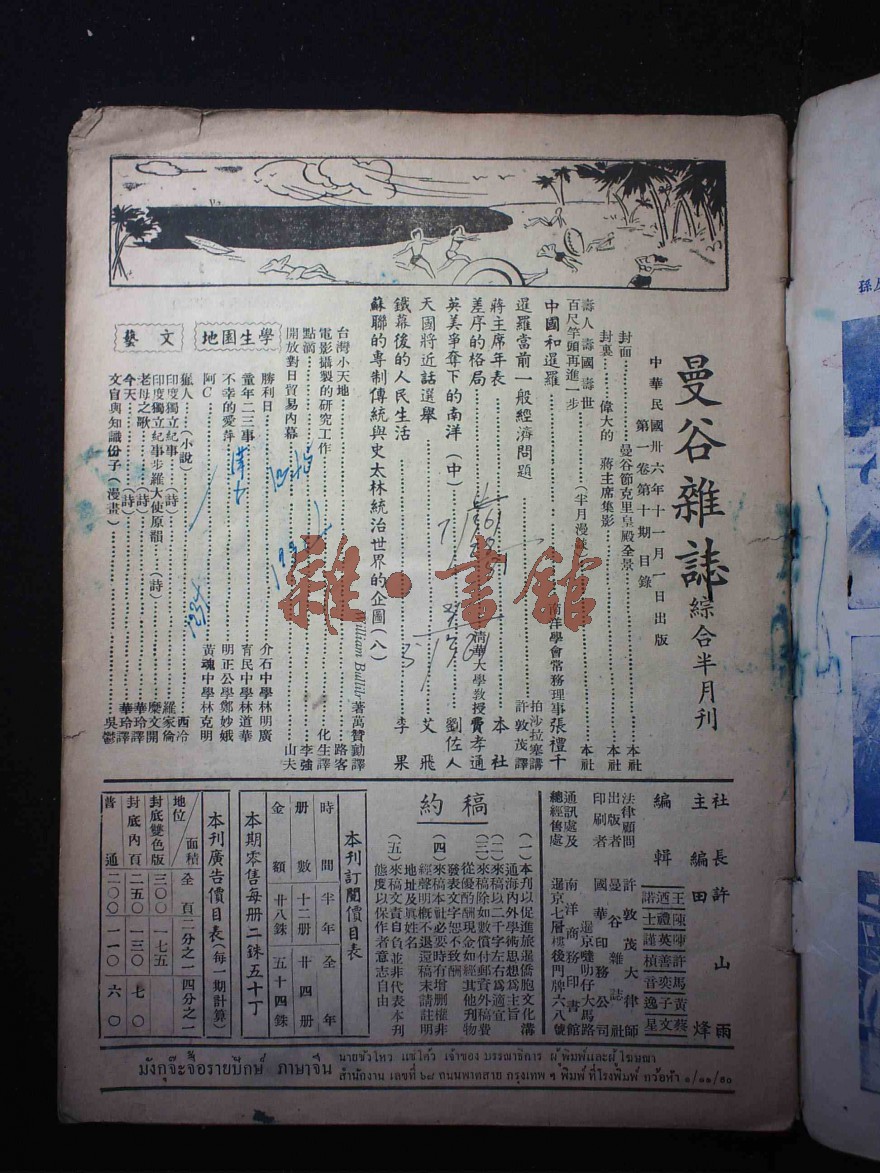 曼谷雜誌 綜合半月刊
中華民國卅六年十一月一日出版
第一卷第十期目錄
封面……曼谷節克里皇殿全景……本社
封裏……偉大的 蔣主席集影……本社
壽人壽國壽世
百尺竿頭再進一步……(半月漫談)
中國和暹羅……南洋學會常務理事張禮千
暹羅當前一般經濟問題……拍沙拉塞講 許敦茂譯
蔣主席年表……本社
差序的格局……清華大學教授費孝通
英美爭奪下的南洋(中)……劉佐人
天國將近話選舉……艾飛
鐵幕後的人民生活……李果
蘇聯的專制傳統與史太林統治世界的企圖(八)
William Bullitr著萬贊勳譯
台灣小天地……路客
電影攝製的研究工作……化生譯
點滴……李強
開放對日貿易內幕……山夫
學生園地
勝利日……介石中學林明廣
童年二三事……育民中學林道華
不幸的愛萍……明正公學鄭妙娥
阿C……黃魂中學林克明
文藝
獵人……(小說)……西冷
印度獨立紀事……(詩)……羅家倫
印度獨立紀事步羅大使原韻……(詩)……糜文開
老母之歌……(詩)……華玲譯
今天……(詩)……華玲譯
文盲與知識份子(漫畫)……吳鬱
社長 許山雨
主編 田烽
編輯
法律顧問 許敦茂大律師
出版者 曼谷雜誌社
暹京嘜叻仔大馬路
印刷者 國華印務公司
通訊處及總經售處 南洋商務印書館
暹京七層樓後門牌六八號
稿約
(一)本刊以促進旅暹僑胞文化溝
通海內外學術思想爲主旨
(二)來稿以二千字左右爲適宜
(三)來稿除如數償付郵資外稿費
從優酌酬現金如經其他刊物
發表文字恕不致酬
(四)來稿本社必要時有增刪權非
經聲明概不退還稿末請註明
地址及眞姓名
(五)來稿文責自負並非代表本刊
態度以保作者意志自由
本刊訂閱價目表
時間 半年 全年
册數 十二册 廿四册
金額 廿八銖 五十四銖
本期零售每册二銖五十丁
本刊廣告價目表(每一期計算)
地位/面積 全頁 二分之一 四分之一
封底雙色版 三〇〇 一七五
封底內頁 二五〇 一三〇 七〇
普通 二〇〇 一一〇 六〇
มังกุจ๊ะจื้อรายปักษ์ ภาษาจีน
นายซัวโหว แซ่โค้ว เจ้าของ บรรณาธิการ ผู้พิมพ์และผู้โฆษณา
สำนักงาน เลขที่ ๖๘ ถนนพาดสาย กรุงเทพ ฯ พิมพ์ ที่โรงพิมพ์ กว้อห้า ๑/๑๑/๙๐
雜·書館